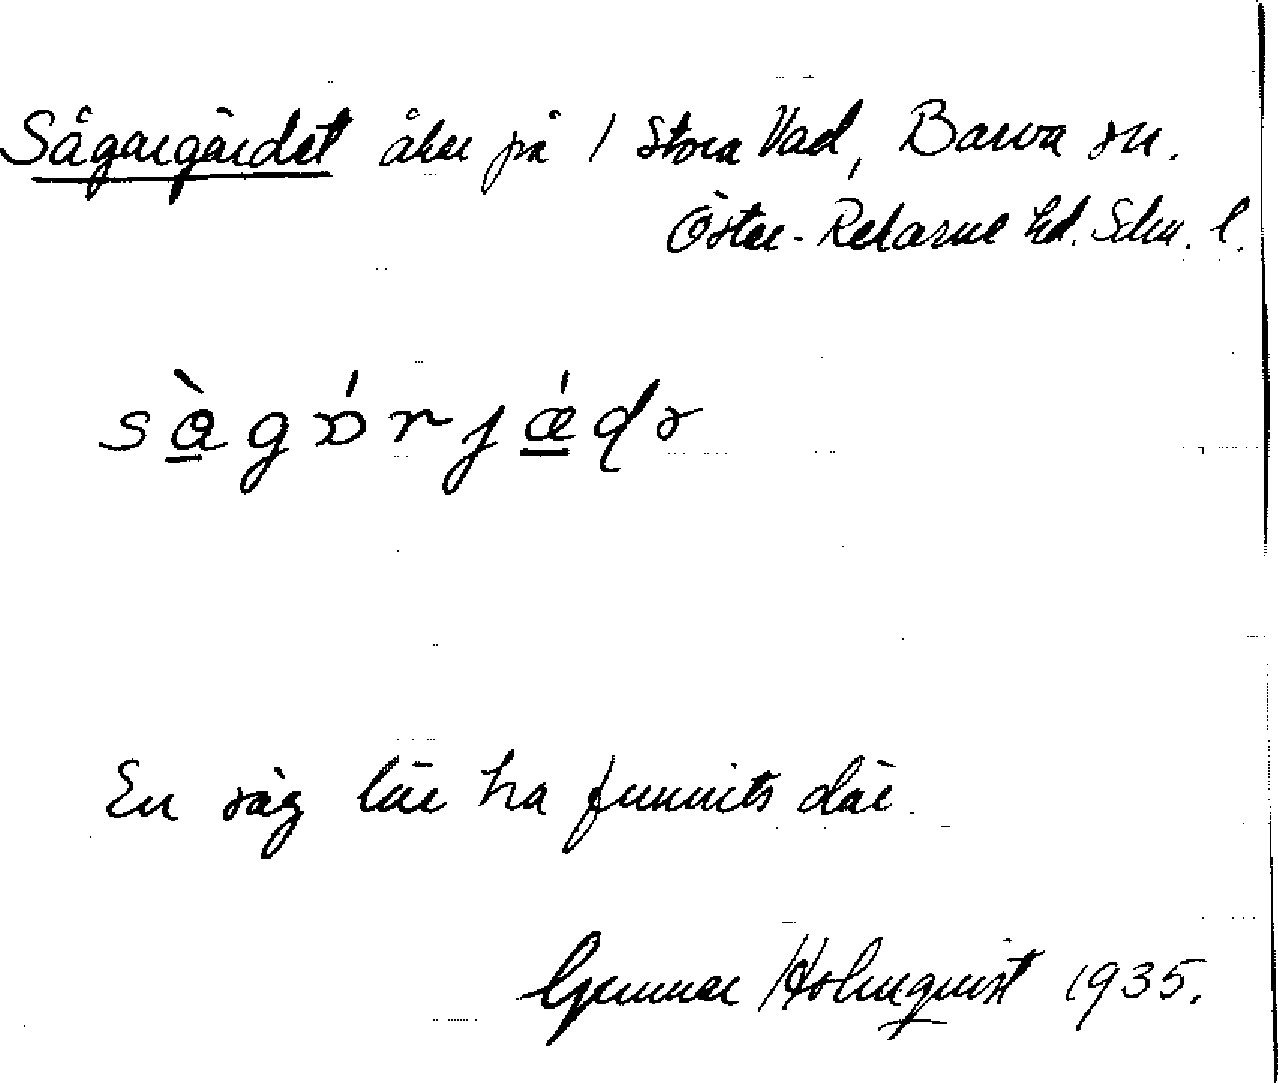 Sågargärdet åker på 1 Stora Vad, Barva sn.
Öster-Rekarne hd. Sdm. l.
En såg lär ha funnits där.
Gunnar Holmquist 1935.